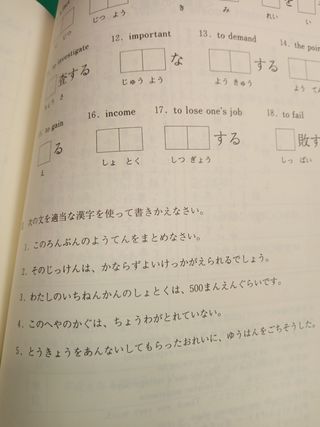 じつ よう
き
み
れい
を
investigate
査する
さ
12. important
な
じゅう よう
13. to demand
する
よう きゅう
14. the poin
よう
to gain
る
え
16. income
しょ とく
17. to lose one's job
する
しつ ぎょう
18. to fail
敗す
しっ ぱい
次の文を適当な漢字を使って書きかえなさい。
1. このろんぶんのようてんをまとめなさい。
2. そのじっけんは、かならずよいけっかがえられるでしょう。
3. わたしのいちねんかんのしょとくは、500まんえんぐらいです。
4. このへやのかぐは、ちょうわがとれていない。
5. とうきょうをあんないしてもらったおれいに、ゆうはんをごちそうした。